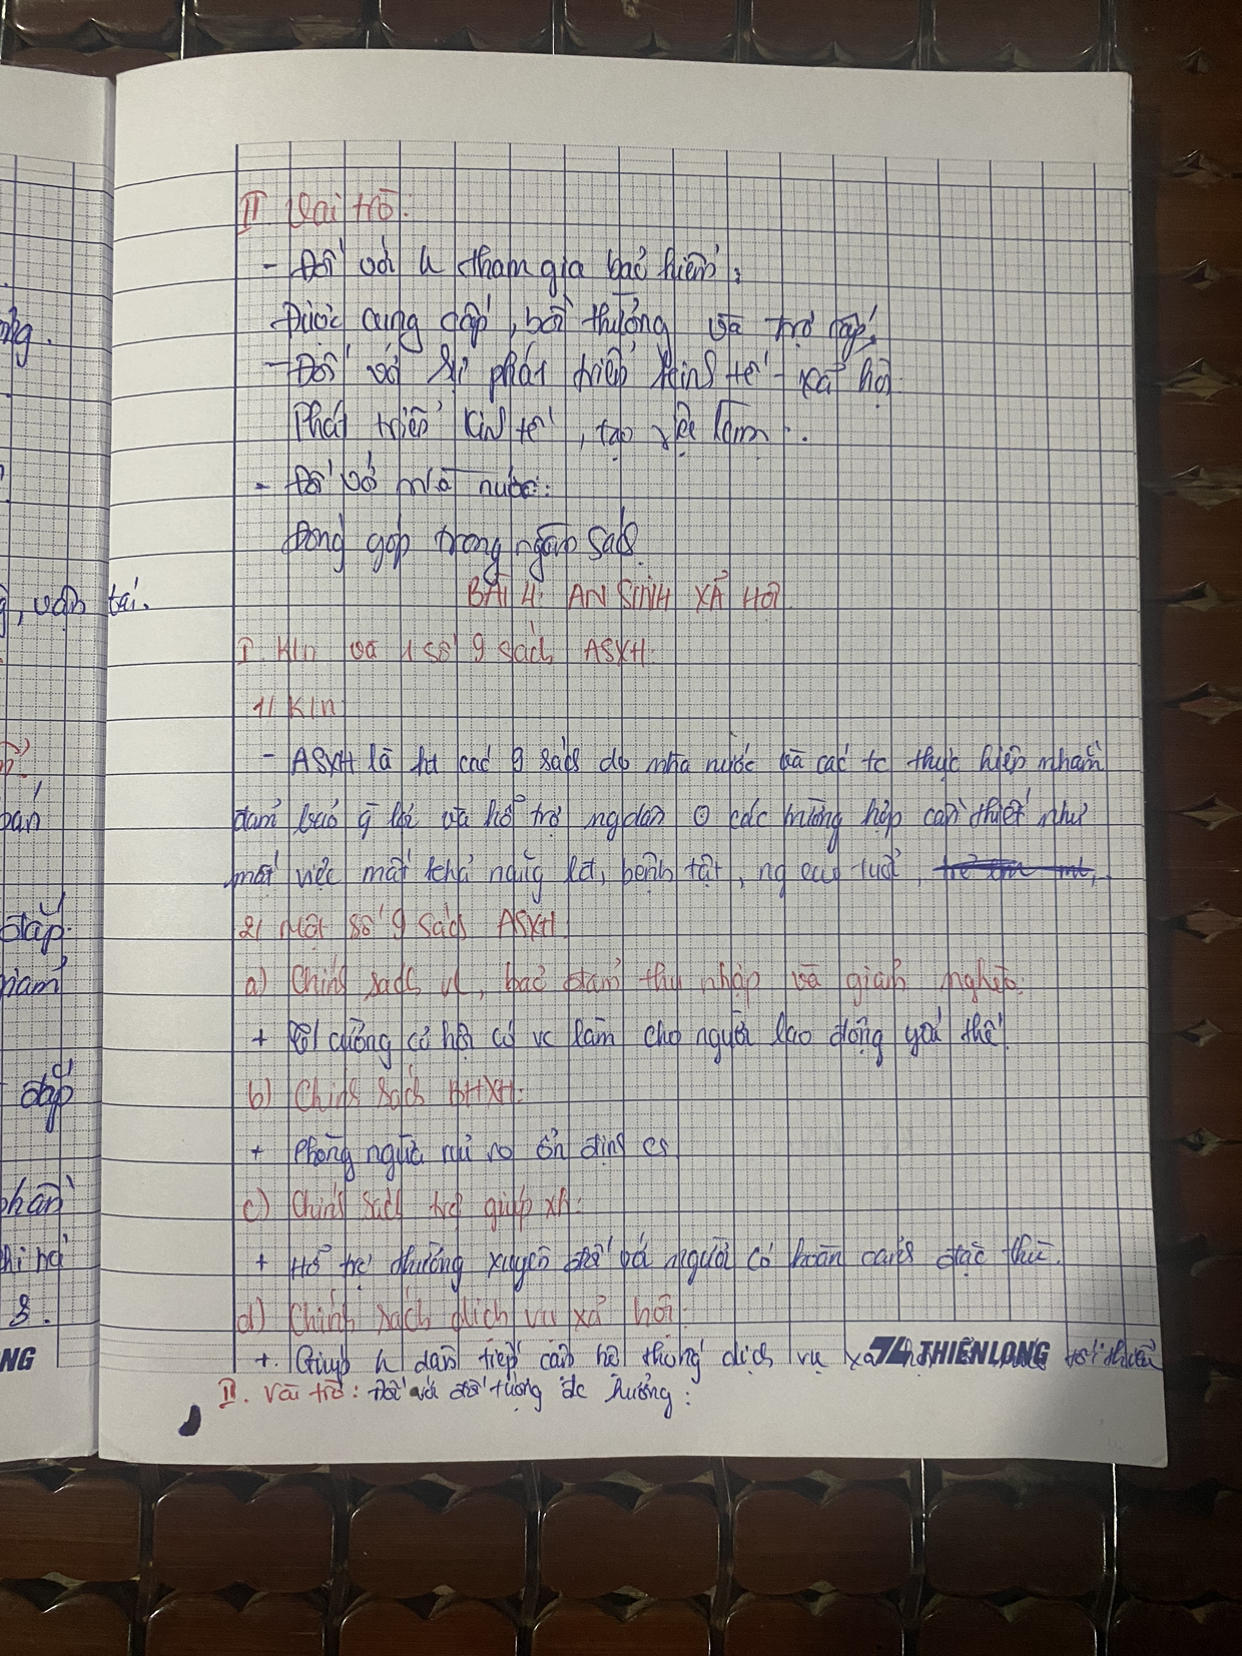 II Vai trò:
- Đối với tham gia bảo hiểm:
Được cung cấp, bồi thường và trợ cấp.
- Đối với sự phát triển kinh tế - xã hội
Phát triển kinh tế, tạo việc làm.
- Đối với nhà nước:
Đóng góp trong ngân sách
BÀI 4: AN SINH XÃ HỘI
I. K/n và 1 số 9 sách ASXH:
1/ K/n
- ASXH là các 9 sách do nhà nước và các tc thực hiện nhằm
đảm bảo và hỗ trợ ng dân các trường hợp cần thiết như
mất việc mất khả năng lđ, bệnh tật, ng cao tuổi,
2/ Một số 9 sách ASXH
a) Chính sách vl, bảo đảm thu nhập và giảm nghèo.
+ cường cơ hội có vc làm cho người lao động yếu thế.
b) Chính sách BHXH:
+ Phòng ngừa rủi ro ổn định cs
c) Chính sách trợ giúp xh:
+ Hỗ trợ thường xuyên đối với người có hoàn cảnh đặc thù.
d) Chính sách dịch vụ xã hội:
+ Giúp dân tiếp cận hệ thống dịch vụ tối thiểu
THIÊN LONG
II. Vai trò: Đối với đối tượng đc hưởng:
ng.
, vận tải.
bán
đáp
giảm
đáp
phần
8.
NG